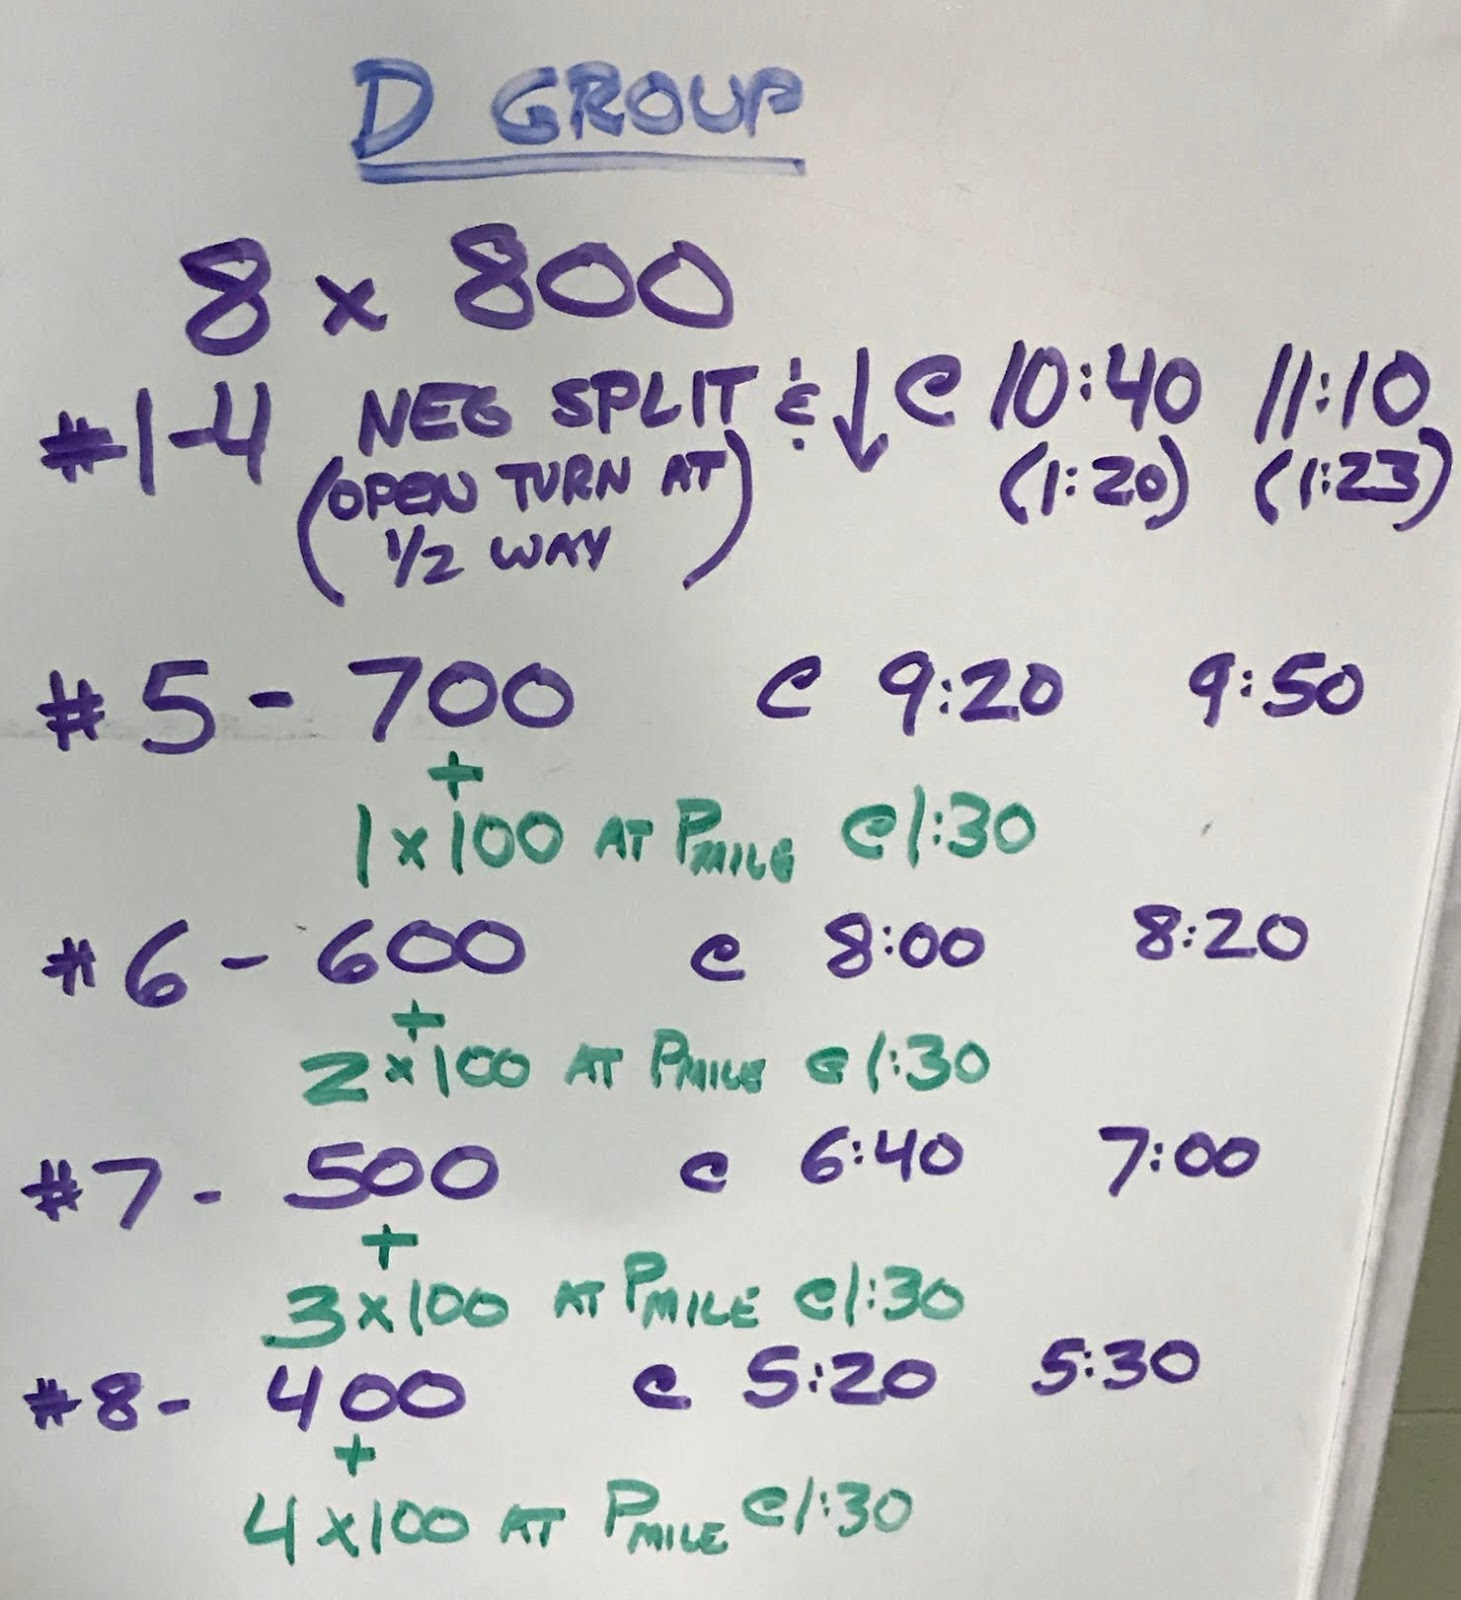 D GROUP
8 x 800
#1-4 NEG SPLIT & ↓ @ 10:40 11:10
(OPEN TURN AT 1/2 WAY) (1:20) (1:23)
#5 - 700 @ 9:20 9:50
+
1 x 100 AT PMILE @ 1:30
#6 - 600 @ 8:00 8:20
+
2 x 100 AT PMILE @ 1:30
#7 - 500 @ 6:40 7:00
+
3 x 100 AT PMILE @ 1:30
#8 - 400 @ 5:20 5:30
+
4 x 100 AT PMILE @ 1:30